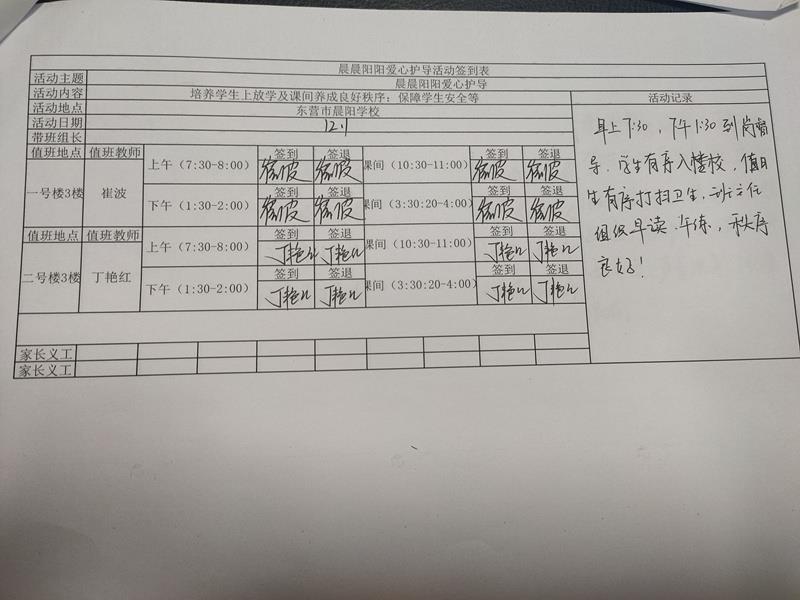 晨晨阳阳爱心护导活动签到表
活动主题 晨晨阳阳爱心护导
活动内容 培养学生上放学及课间养成良好秩序；保障学生安全等 活动记录
活动地点 东营市晨阳学校
活动日期 12.1
带班组长
值班地点 值班教师 上午（7:30-8:00） 签到 签退 课间（10:30-11:00） 签到 签退
一号楼3楼 崔波
下午（1:30-2:00） 签到 签退 课间（3:30:20-4:00） 签到 签退
值班地点 值班教师 上午（7:30-8:00） 签到 签退 课间（10:30-11:00） 签到 签退
丁艳红 丁艳红 丁艳红 丁艳红
二号楼3楼 丁艳红
下午（1:30-2:00） 签到 签退 课间（3:30:20-4:00） 签到 签退
丁艳红 丁艳红 丁艳红 丁艳红
家长义工
家长义工
早上7:30，下午1:30到岗督
导，学生有序入楼校，值日
生有序打扫卫生，班主任
组织早读、午练，秩序
良好！